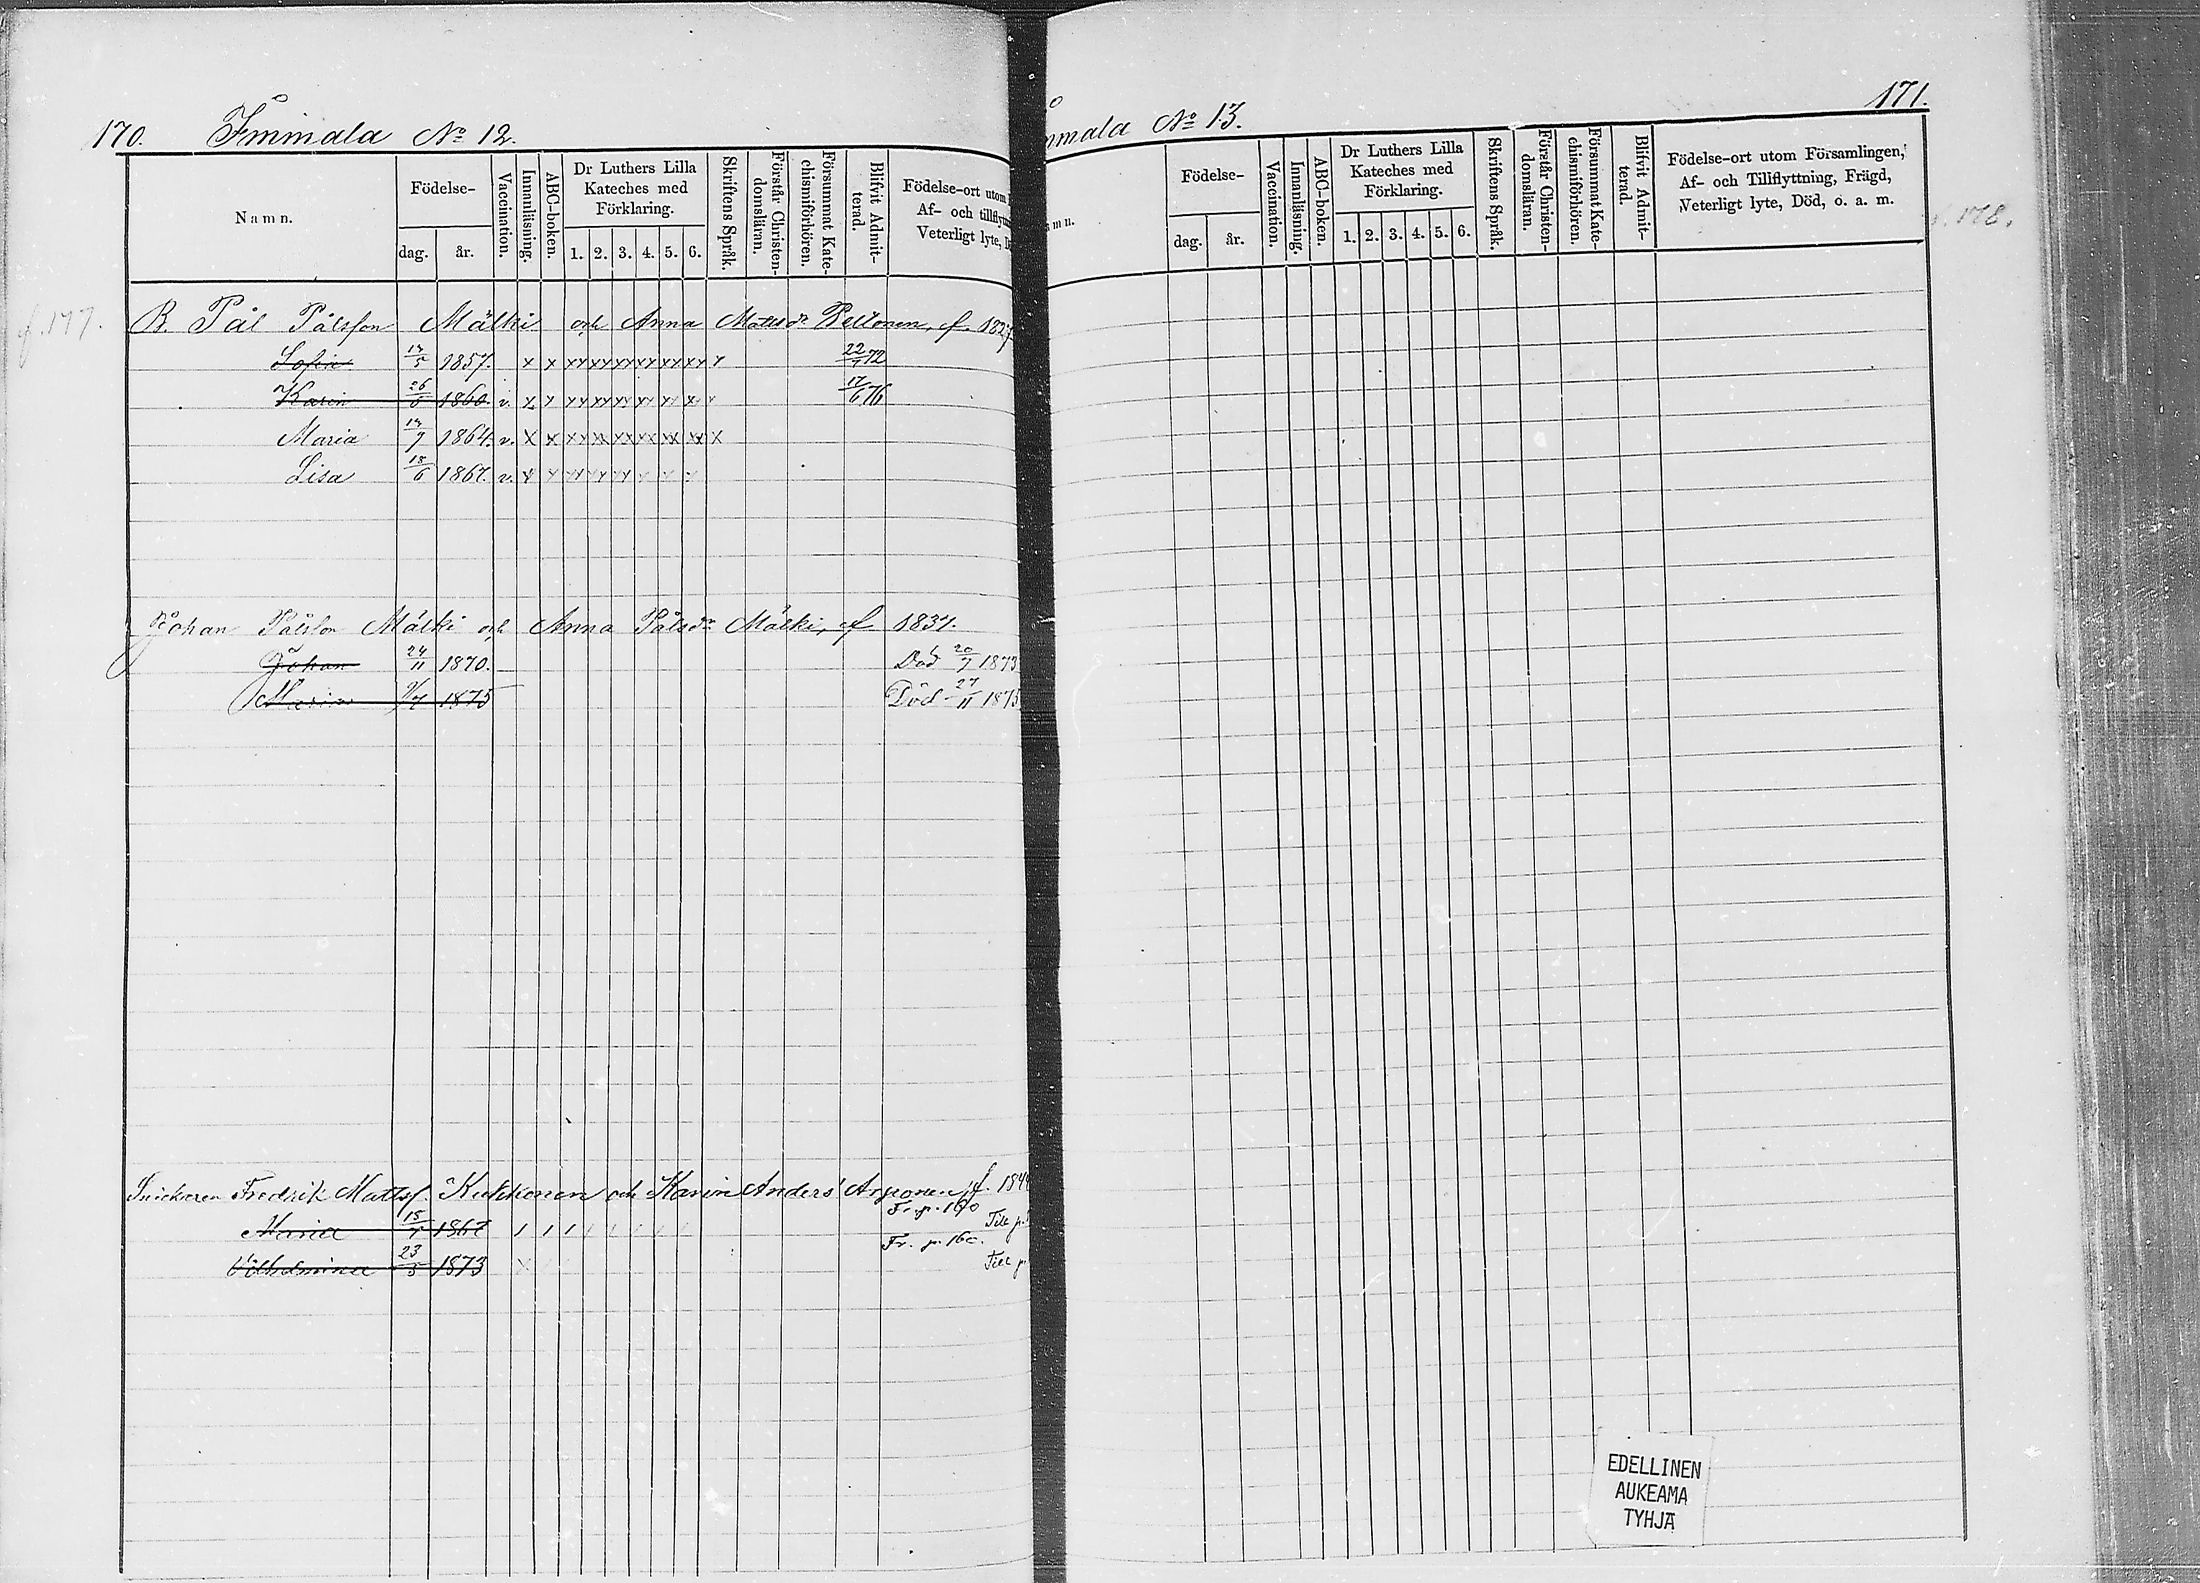 170. Immala No 12.
Namn.
Födelse-
dag.
år.
Vaccination.
Innanläsning.
ABC-boken.
Dr Luthers Lilla
Kateches med
Förklaring.
1. 2. 3. 4. 5. 6.
Skriftens Språk.
Förstår Christen-
domsläran.
Försummat Kate-
chismiförhören.
Blifvit Admit-
terad.
Födelse-ort utom
Af- och tillflytt
Veterligt lyte, D
f. 177.
B. Pål Pålsson Mälki och Anna Mattsdr Peltonen, f. 1827
Sofia 1857. x x xx xx xx xx xx xx x 22/9 72
Karin 26/6 1860. v. x x xx xx xx xx xx x 17/6 76
Maria 1864. v. x x xx xx xx xx xx xx x
Lisa 18/6 1867. v.
Johan Pålsson Mälki och Anna Pålsdr Mälki, f. 1837.
Johan 24/11 1870. Död 20/7 1873
Maria 1875 Död 27/11 1875
Snickaren Fredrik Mattsf. Kukkonen och Karin Anders Arponen, f. 184
Fr. p. 160
Maria 1867 Till p.
Fr. p. 160.
Vilhelmina 23/5 1873 Till p.
mmala No 13. 171.
mn.
Födelse-
dag.
år.
Vaccination.
Innanläsning.
ABC-boken.
Dr Luthers Lilla
Kateches med
Förklaring.
1. 2. 3. 4. 5. 6.
Skriftens Språk.
Förstår Christen-
domsläran.
Försummat Kate-
chismiförhören.
Blifvit Admit-
terad.
Födelse-ort utom Församlingen,
Af- och Tillflyttning, Frägd,
Veterligt lyte, Död, o. a. m.
f. 178.
EDELLINEN
AUKEAMA
TYHJÄ